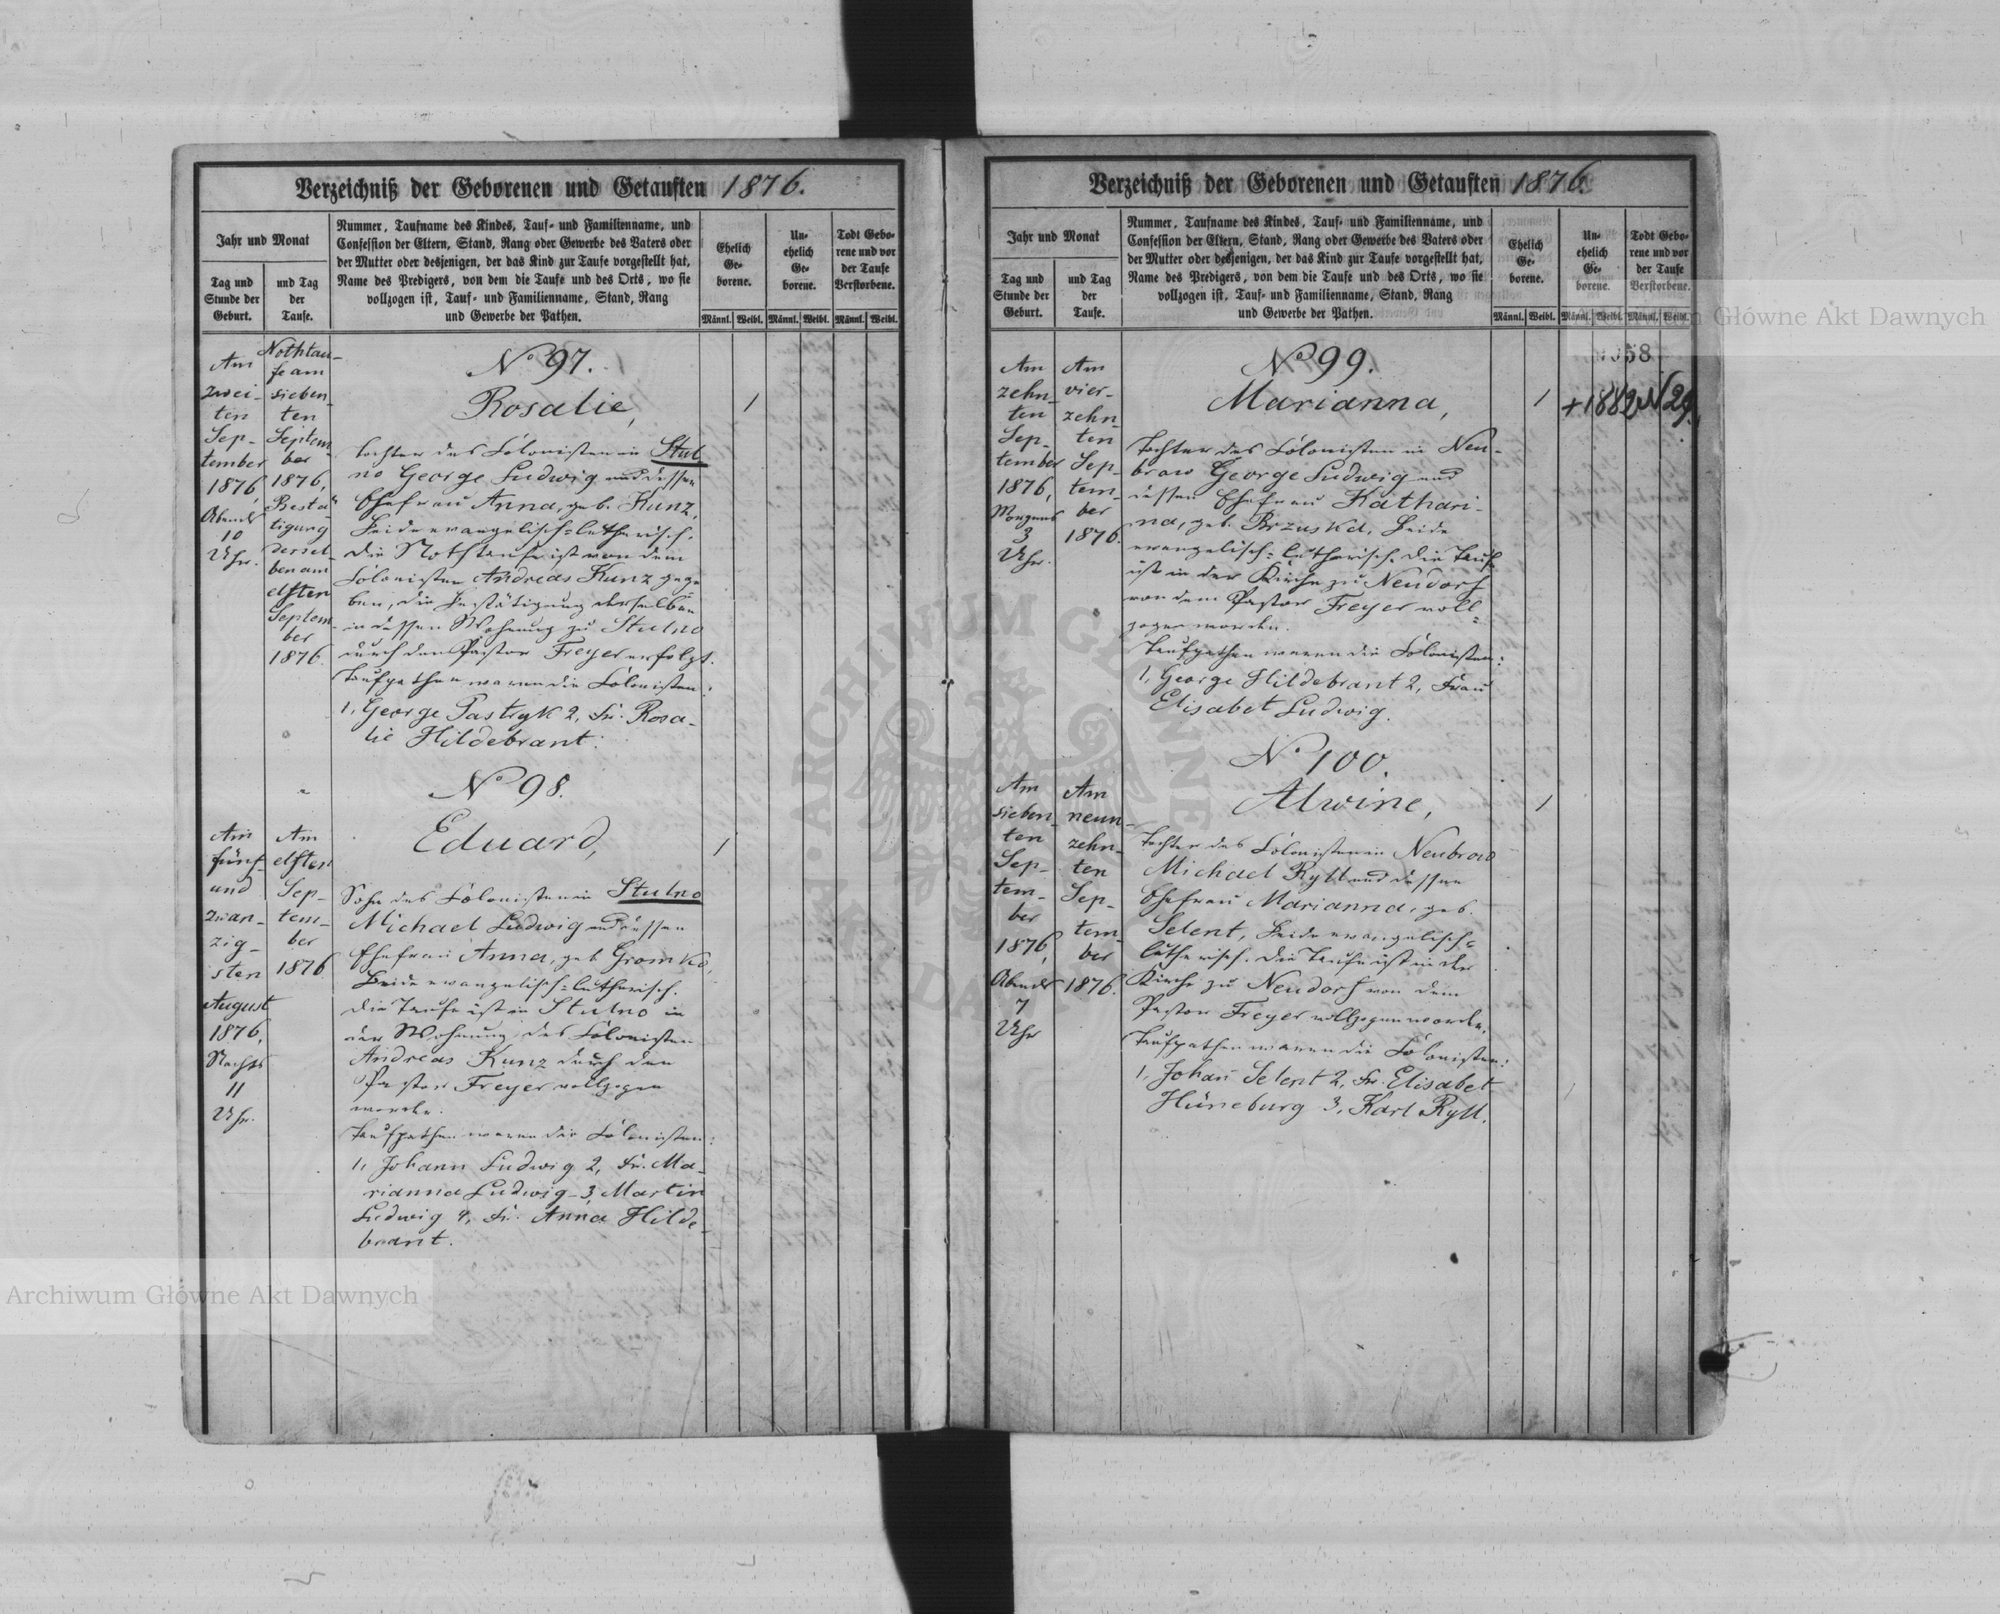 Verzeichniß der Geborenen und Getauften 1876.
Jahr und Monat
Tag und
Stunde der
Geburt.
und Tag
der
Taufe.
Nummer, Taufname des Kindes, Tauf- und Familienname, und
Confession der Eltern, Stand, Rang oder Gewerbe des Vaters oder
der Mutter oder desjenigen, der das Kind zur Taufe vorgestellt hat,
Name des Predigers, von dem die Taufe und des Orts, wo sie
vollzogen ist, Tauf- und Familienname, Stand, Rang
und Gewerbe der Pathen.
Ehelich
Ge-
borene.
Un-
ehelich
Ge-
borene.
Todt Gebo-
rene und vor
der Taufe
Verstorbene.
Männl. Weibl. Männl. Weibl. Männl. Weibl.
Am
zwei-
ten
Sep-
tember
1876,
Abends
10
Uhr.
Nothtau-
fe am
sieben-
ten
Septem-
ber
1876,
Bestä-
tigung
dersel-
ben am
elften
Septem-
ber
1876.
No 97.
Rosalie,
1
Tochter des Colonisten in Stul
no George Ludwig und dessen
Ehefrau Anna, geb. Kunz,
Beide evangelisch-lutherisch.
Die Nothtaufe ist von dem
Colonisten Andreas Kunz gege
ben, die Bestätigung derselben
in dessen Wohnung zu Stulno
durch den Pastor Freyer erfolgt.
Taufpathen waren die Colonisten:
1, George Pastryk 2, Fr. Rosa-
lie Hildebrant.
Am
fünf-
und
zwan-
zig-
sten
August
1876,
Nachts
11
Uhr.
Am
elften
Sep-
tem-
ber
1876
No 98.
Eduard,
1
Sohn des Colonisten in Stulno
Michael Ludwig und dessen
Ehefrau Anna, geb. Gromko,
Beide evangelisch-lutherisch.
Die Taufe ist in Stulno in
der Wohnung des Colonisten
Andreas Kunz durch den
Pastor Freyer vollzogen
worden.
Taufpathen waren die Colonisten:
1, Johann Ludwig 2, Fr. Ma-
rianna Ludwig 3, Martin
Ludwig 4, Fr. Anna Hilde-
brant.
Verzeichniß der Geborenen und Getauften 1876.
Jahr und Monat
Tag und
Stunde der
Geburt.
und Tag
der
Taufe.
Nummer, Taufname des Kindes, Tauf- und Familienname, und
Confession der Eltern, Stand, Rang oder Gewerbe des Vaters oder
der Mutter oder desjenigen, der das Kind zur Taufe vorgestellt hat,
Name des Predigers, von dem die Taufe und des Orts, wo sie
vollzogen ist, Tauf- und Familienname, Stand, Rang
und Gewerbe der Pathen.
Ehelich
Ge-
borene.
Un-
ehelich
Ge-
borene.
Todt Gebo-
rene und vor
der Taufe
Verstorbene.
Männl. Weibl. Männl. Weibl. Männl. Weibl.
Am
zehn-
ten
Sep-
tember
1876,
Morgens
3
Uhr.
Am
vier-
zehn-
ten
Sep-
tem-
ber
1876.
No 99.
Marianna,
1
+1882 N 29.
Tochter des Colonisten in Neu-
brow George Ludwig und
dessen Ehefrau Kathari-
na, geb. Brzuska, Beide
evangelisch-lutherisch. Die Taufe
ist in der Kirche zu Neudorf
von dem Pastor Freyer voll-
zogen worden.
Taufpathen waren die Colonisten:
1, George Hildebrant 2, Frau
Elisabet Ludwig.
Am
sieben-
ten
Sep-
tem-
ber
1876,
Abends
7
Uhr
Am
neun-
zehn-
ten
Sep-
tem-
ber
1876.
No 100.
Alwine,
1
Tochter des Colonisten in Neubrow
Michael Ryll und dessen
Ehefrau Marianna, geb.
Selent, Beide evangelisch-
lutherisch. Die Taufe ist in der
Kirche zu Neudorf von dem
Pastor Freyer vollzogen worden.
Taufpathen waren die Colonisten:
1, Johann Selent 2, Fr. Elisabet
Hüneburg 3, Karl Ryll.
Archiwum Główne Akt Dawnych
Archiwum Główne Akt Dawnych